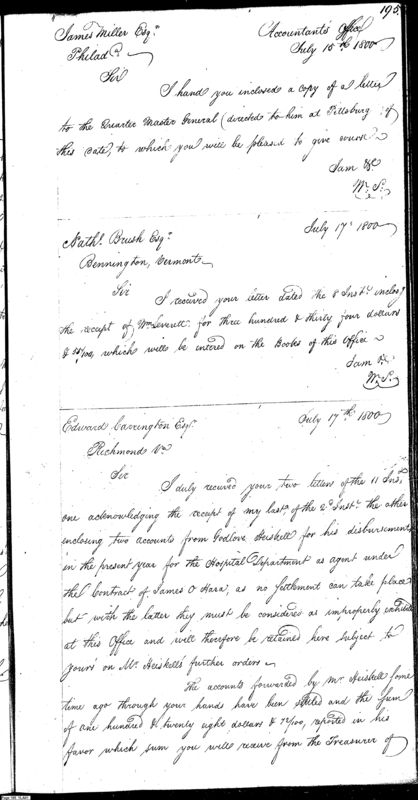 195
James Miller Esqr. Accountants Office
Philada. July 15th 1800
Sir
I hand you inclosed a copy of a letter
to the Quarter Master General (directed to him at Pittsburg) of
this date, to which you will be pleased to give course
I am &c
Wm. S.
July 17th 1800
Nathl. Brush Esqr.
Bennington, Vermont
Sir
I received your letter dated the 8 Inst. inclosg
the receipt of Wm Leverett for three hundred & thirty four dollars
& 55/100, which will be entered on the Books of this Office
I am &c
Wm. S.
Edward Carrington Esqr. July 17th 1800
Richmond Va.
Sir
I duly received your two letters of the 11 Inst,
one acknowledging the receipt of my last, of the 2d. Inst. the other
inclosing two accounts from Godlove Heiskell for his disbursements
in the present year for the Hospital Department as agent under
the Contract of James O Hara, as no Settlement can take place
but with the latter they must be considered as improperly
at this Office and will therefore be retained here subject to
yours or Mr. Heiskell's further orders
The accounts forwarded by Mr. Heiskell some
time ago through your hands have been settled and the sum
of one hundred & twenty eight dollars & 72/100, reported in his
favor which sum you will receive from the Treasurer of